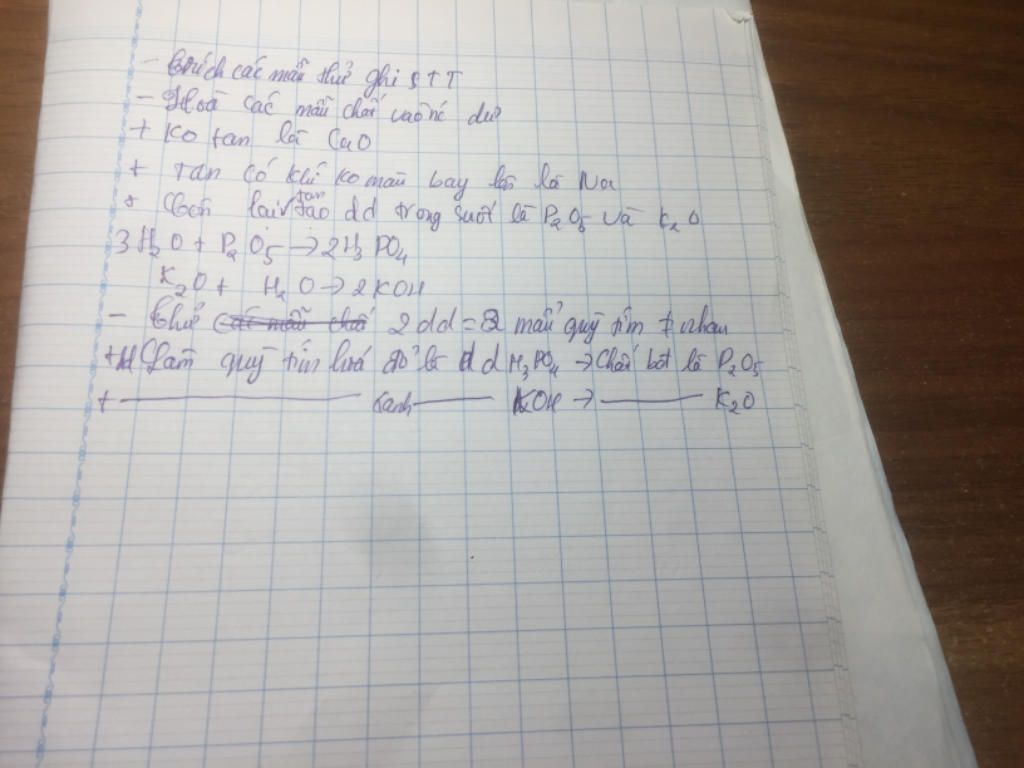 - Trích các mẫu thử ghi STT
- Hoà các mẫu chất vào nc dư
+ Ko tan là CuO
+ Tan có khí ko màu bay lên là Na
+ Còn lại tan tạo dd trong suốt là P2O5 và K2O
3H2O + P2O5 → 2H3PO4
K2O + H2O → 2KOH
- Thử các mẫu chất 2 dd = 2 mẩu quỳ tím ≠ nhau
+ Làm quỳ tím hoá đỏ là dd H3PO4 → Chất bột là P2O5
+ ——— xanh ——— KOH → ——— K2O